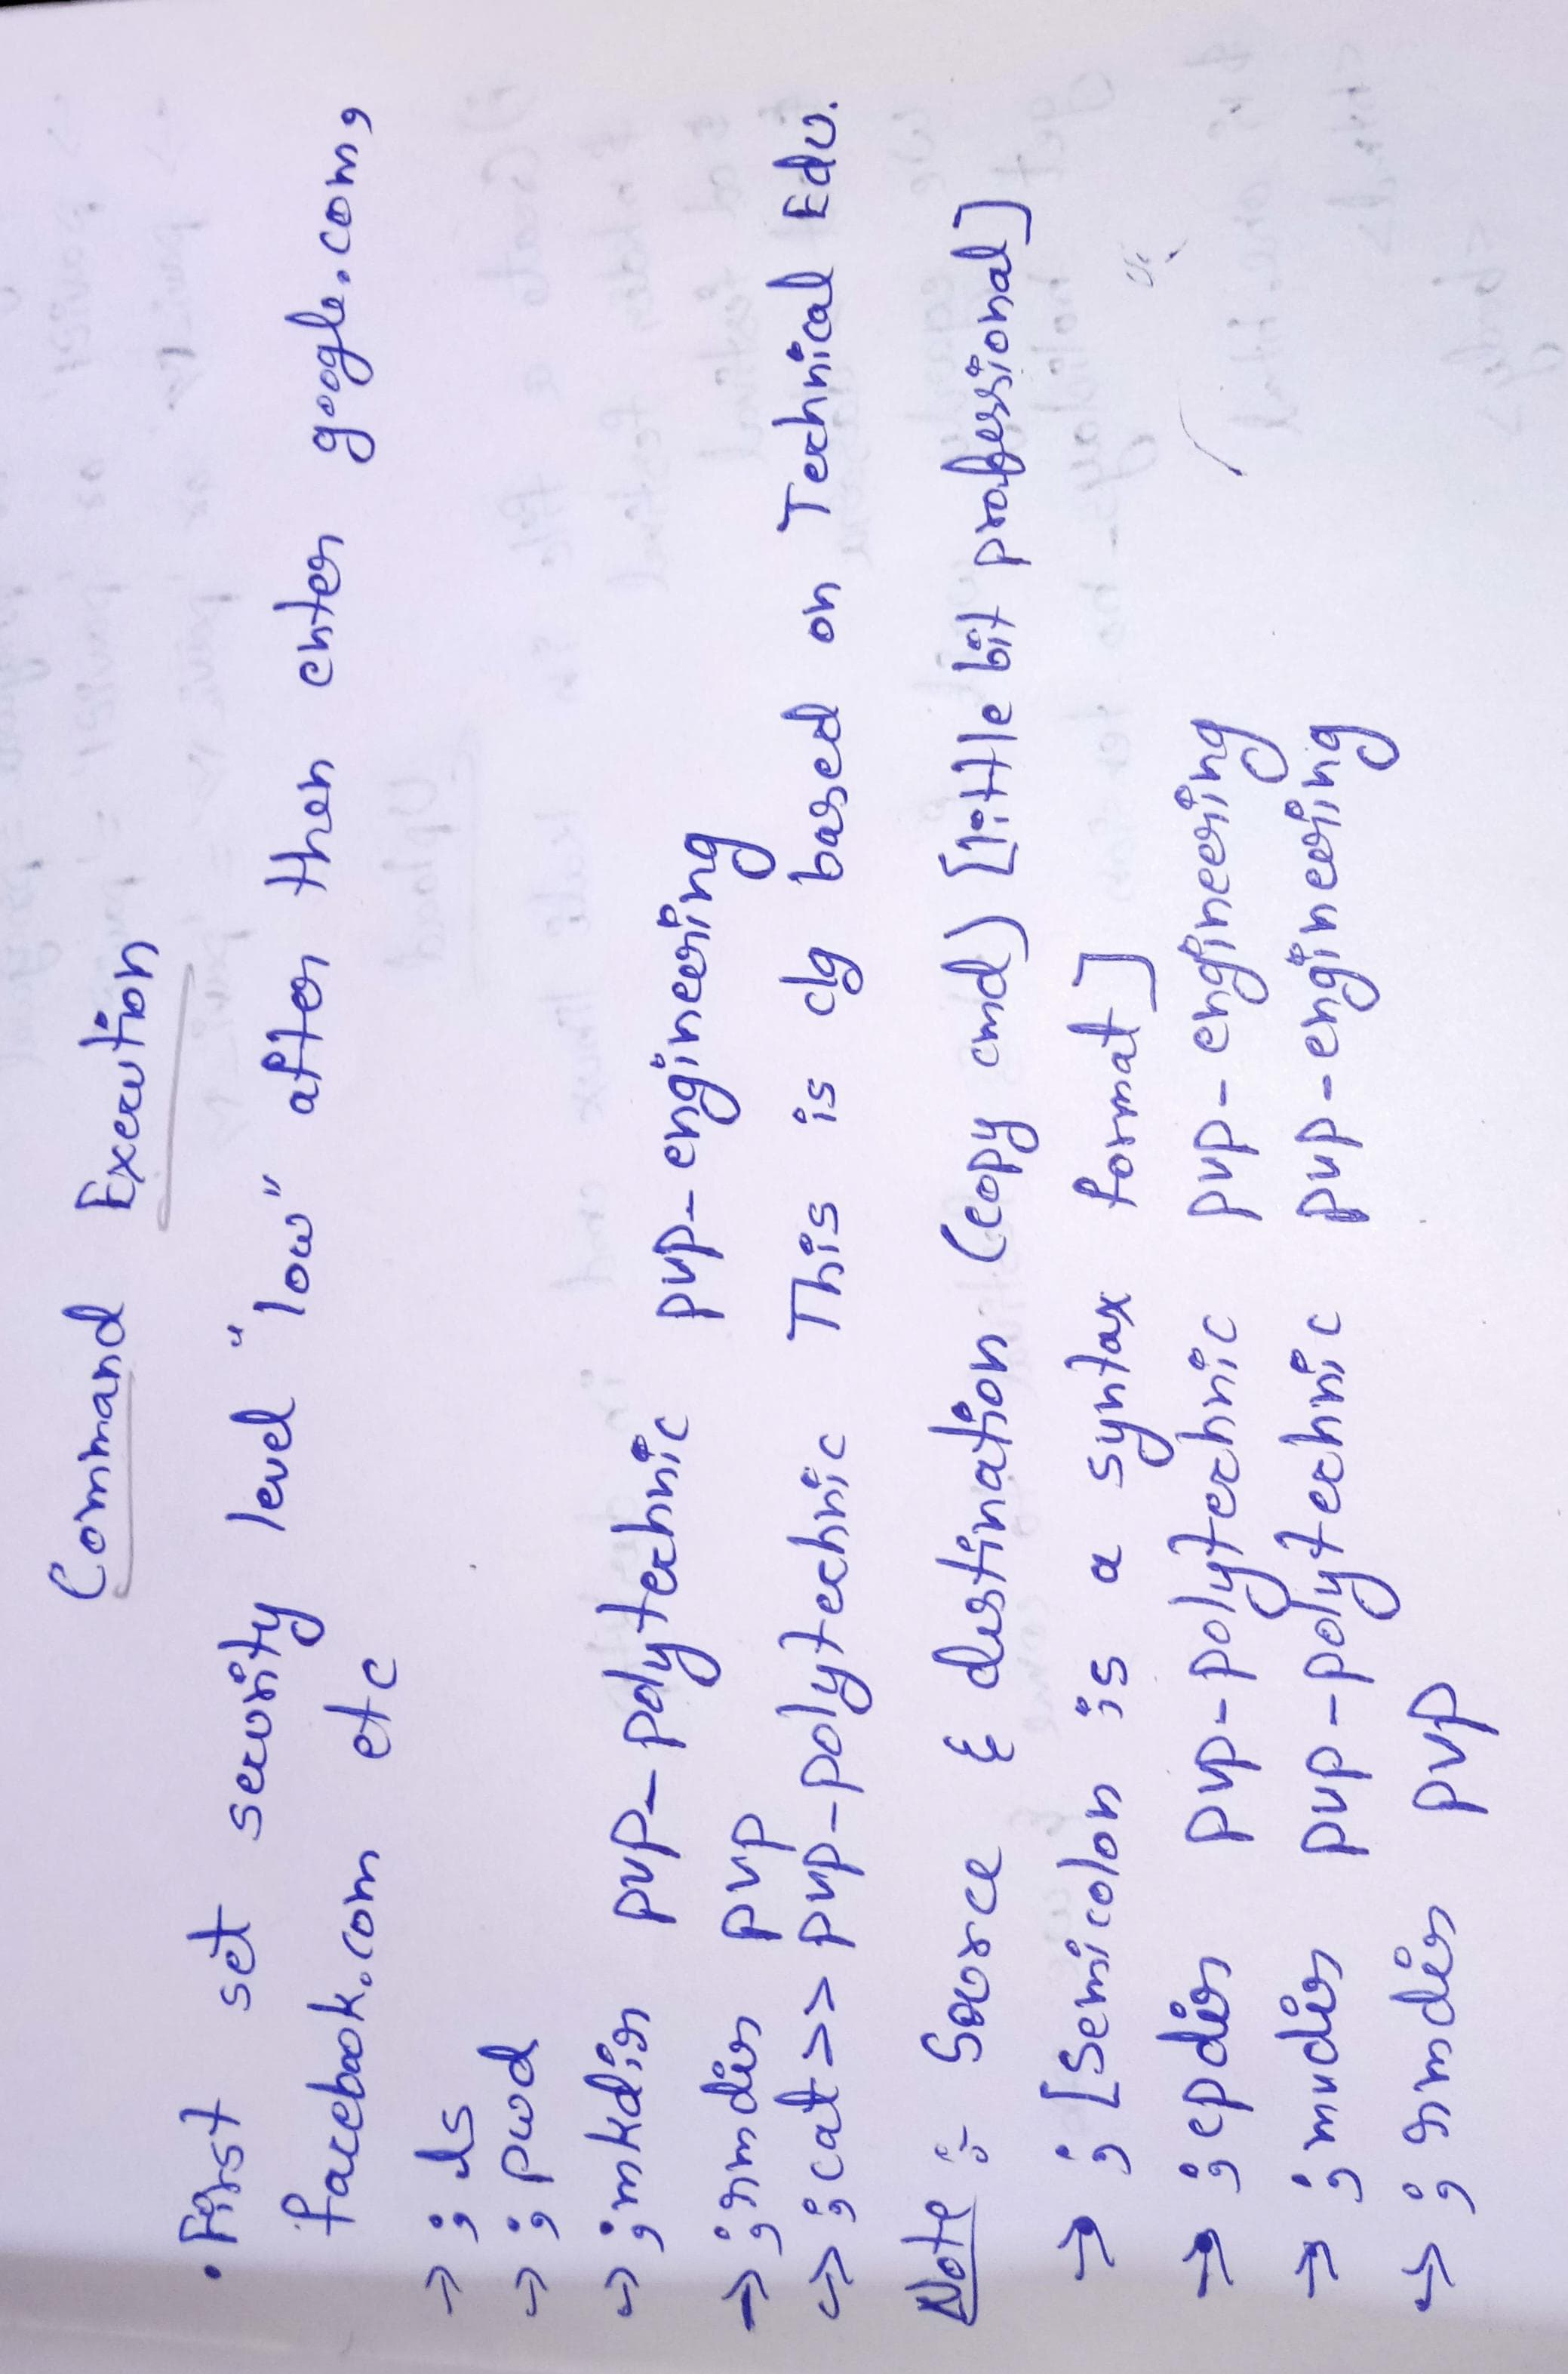 Command Execution
• First set security level "low" after then enter google.com,
facebook.com etc
→ ; ls
→ ; pwd
→ ; mkdir pvp-polytechnic pvp-engineering
→ ; rmdir pvp
→ ; cat >> pvp-polytechnic This is clg based on Technical Edu.
Note :- Source & destination (copy cmd) [little bit professional]
→ ; [semicolon is a syntax format]
→ ; cpdir pvp-polytechnic pvp-engineering
→ ; mvdir pvp-polytechnic pvp-engineering
→ ; rmdir pvp